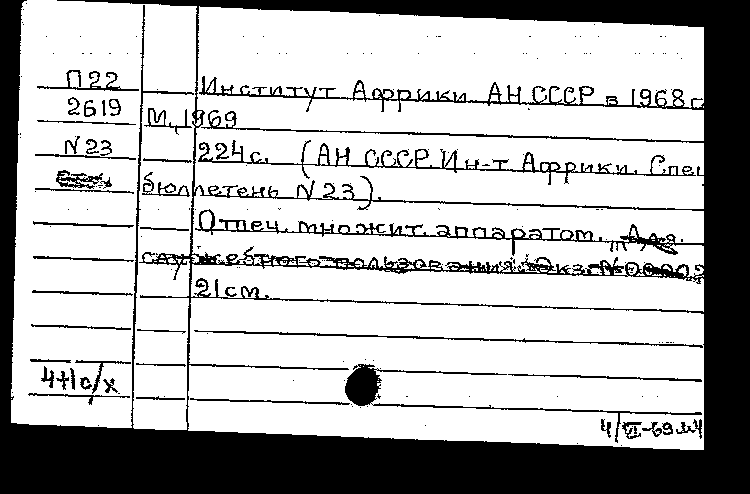 П22 Институт Африки АН СССР в 1968 г
2619 М., 1969
N23 224 с. (АН СССР. Ин-т Африки. Спец
бюллетень N 23).
Отпеч. множит. аппаратом. „Для
служебного пользования". Экз. N 00002
21 см.
4+1 с/х
4/VI-69